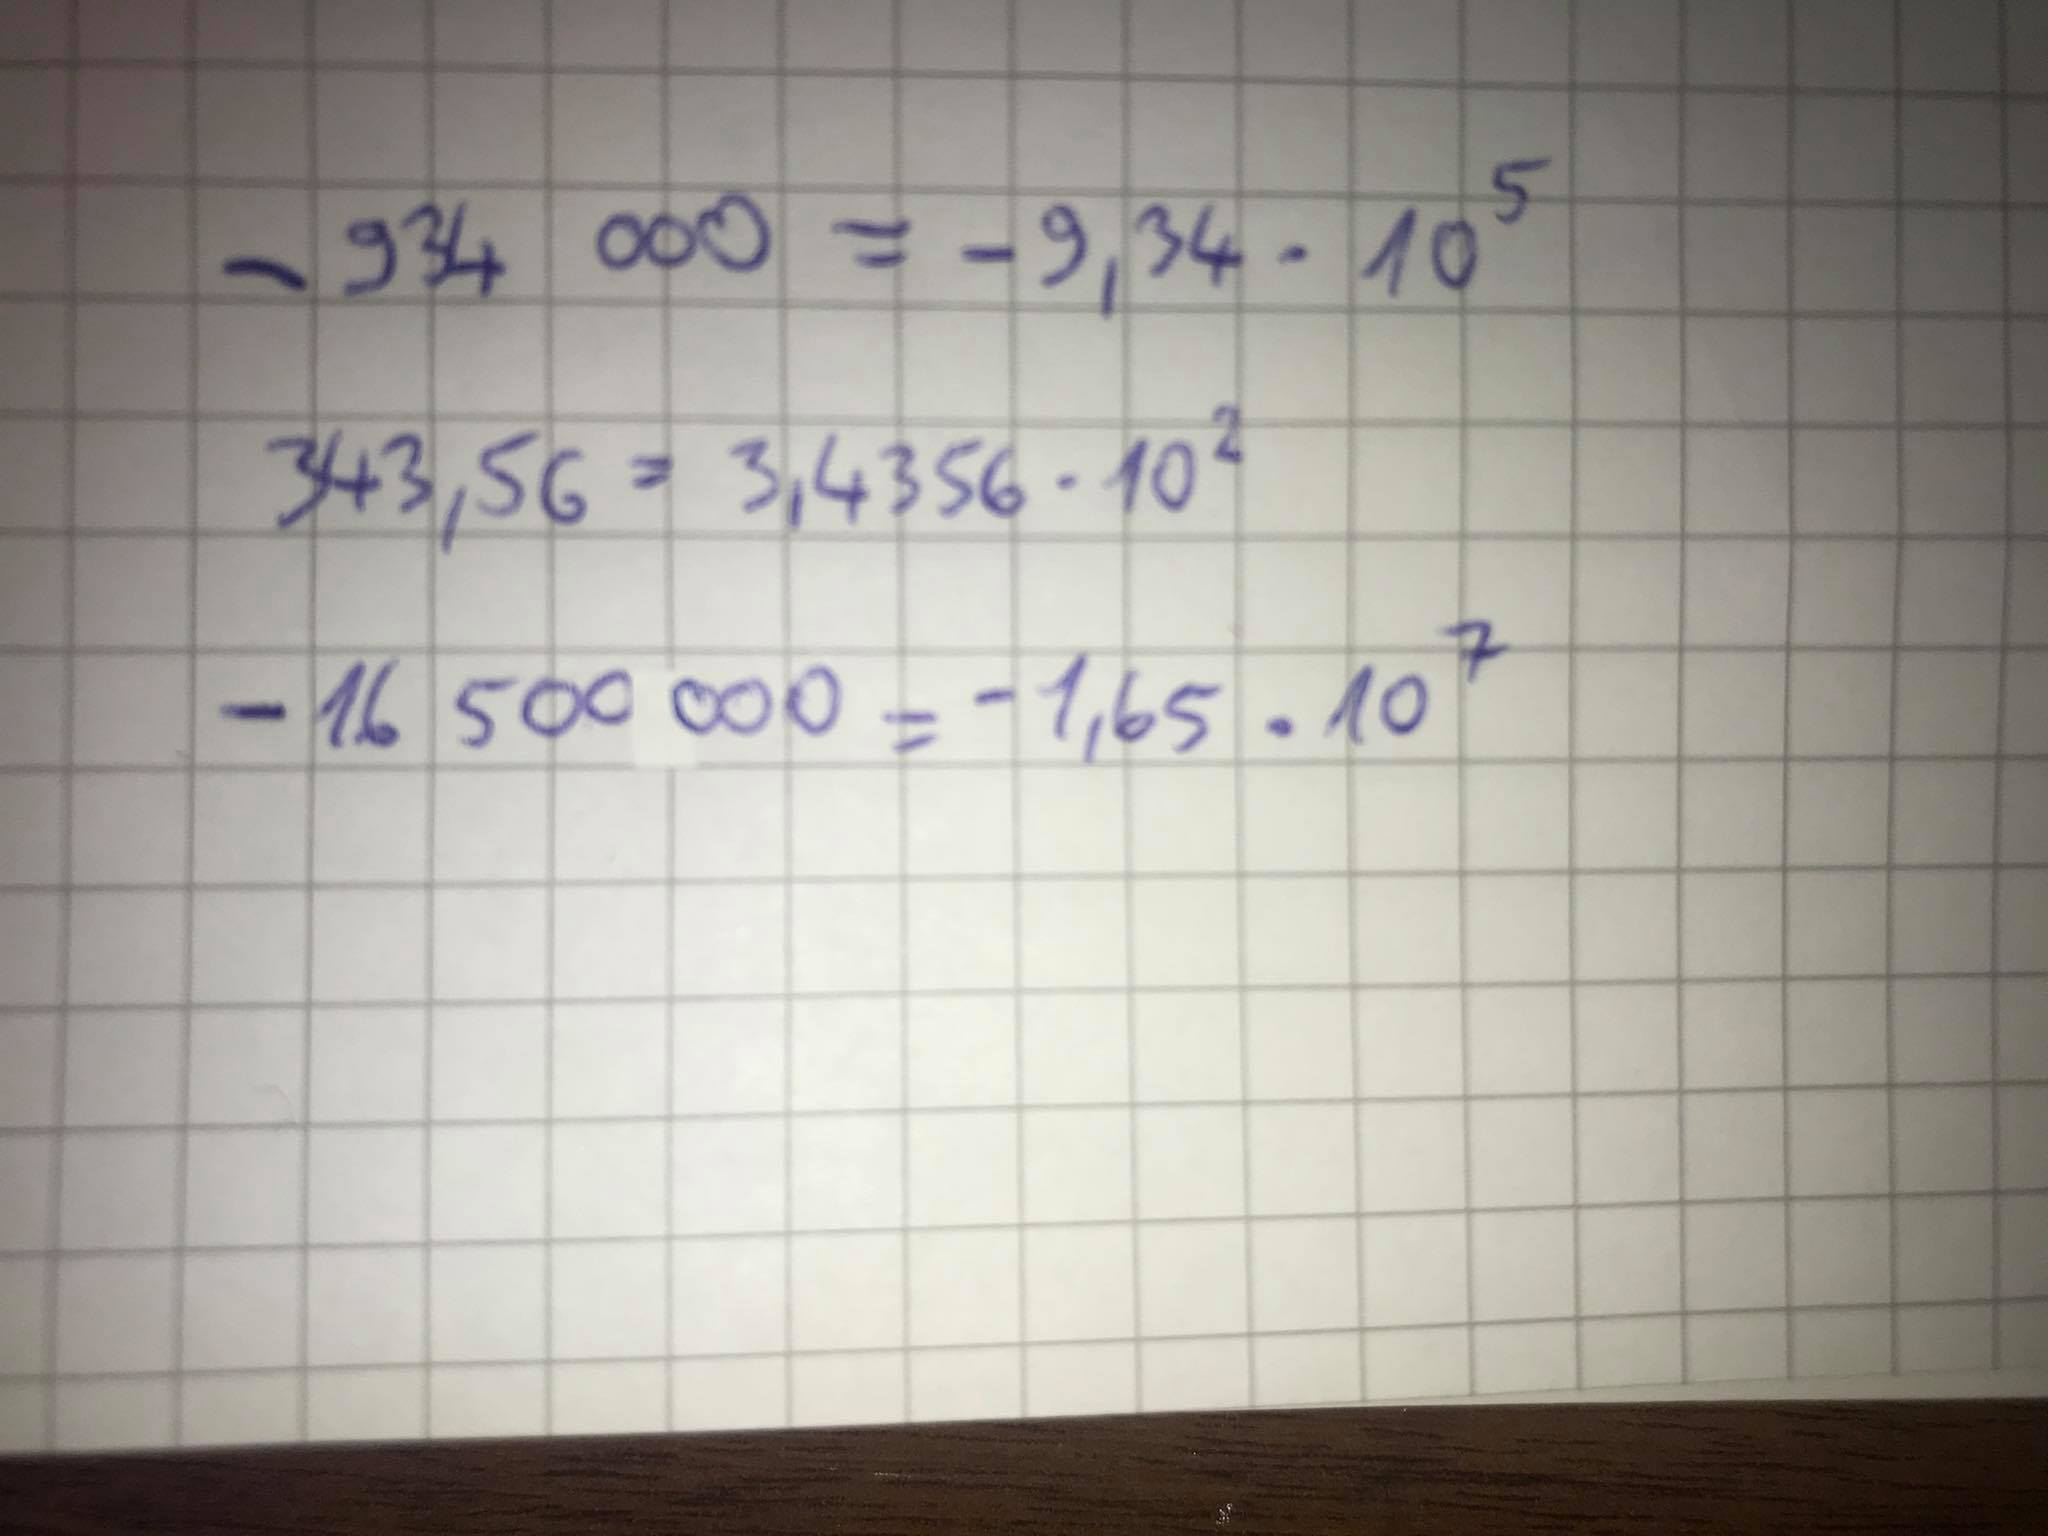 - 934 000 = - 9,34 · 10⁵
343,56 = 3,4356 · 10²
- 16 500 000 = - 1,65 · 10⁷